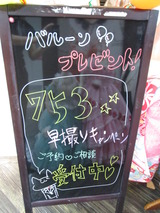 バルーン
プレゼント!
753☆☆
早撮りキャンペーン
ご予約♡ご相談
受付中♡